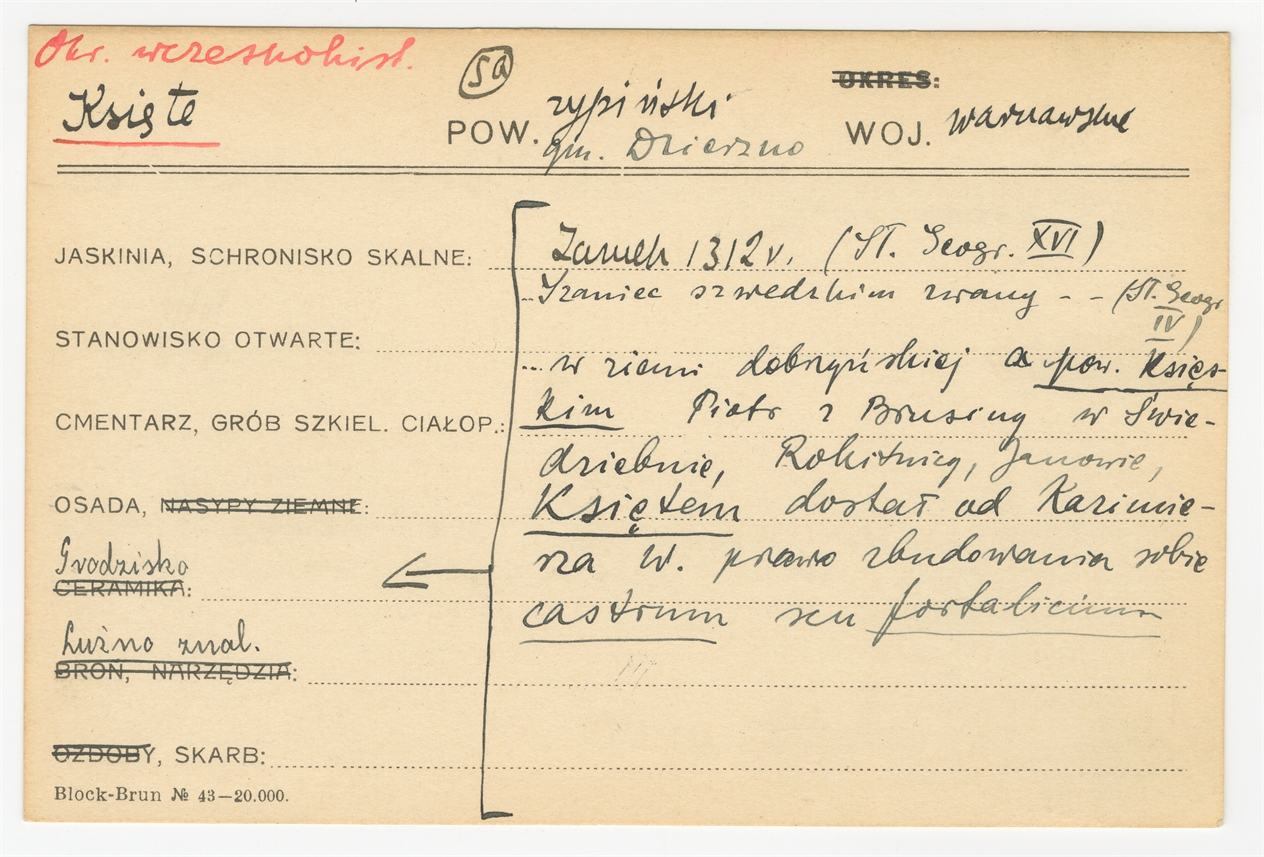 Okr. wczesnohist.
Księte
5a
POW. rypiński
gm. Dzierzno
OKRES:
WOJ. warszawskie
JASKINIA, SCHRONISKO SKALNE:
Zamek 1312 r. (Sł. Geogr. XVI)
..Szaniec szwedzkim zwany - - (Sł. Geogr IV)
STANOWISKO OTWARTE:
... w ziemi dobrzyńskiej a pow. Księs-
CMENTARZ, GRÓB SZKIEL. CIAŁOP.:
kim Piotr z Brusiny w Świe-
dziebnie, Rokitnicy, Janowie,
OSADA, NASYPY ZIEMNE:
Księtem dostał od Kazimie-
Grodzisko
CERAMIKA:
rza W. prawo zbudowania sobie
castrum seu fortalicium
Luźno znal.
BROŃ, NARZĘDZIA:
OZDOBY, SKARB:
Block-Brun № 43—20.000.